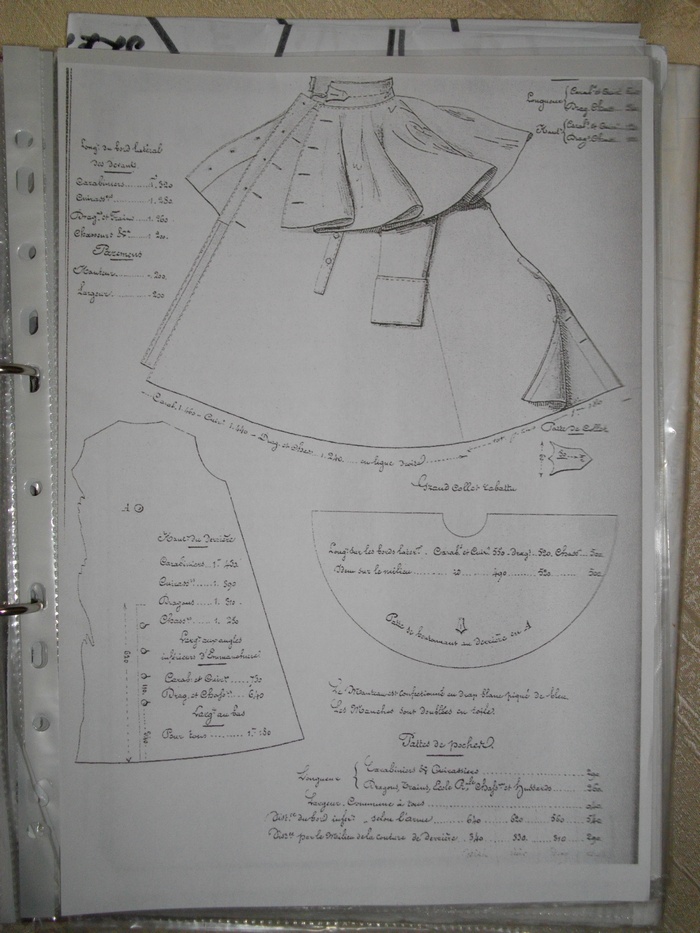 Longueur { Carab. et Cuir.
Drag. Chass.
Haut. { Carab. et Cuir.
Drag. Chass.
Long.r du bord latéral
des devants
Carabiniers......1m,320
Cuirass.rs......1. 280
Drag.ns et Trains...1. 260
Chasseurs &a......1. 200.
Parement
Hauteur......,200.
Largeur......,200
Carab. 1.460 - Cuir. 1.440 - Drag. et Chass. 1.240..... en ligne droite
Patte de Collet
Grand Collet rabattu
A
Haut.r du Derrière
Carabiniers 1m. 430
Cuirass.rs....1. 390
Dragons.....1. 310.
Chass.rs.....1. 250
Larg.r aux angles
inférieurs d'Emmanchure
Carab. et Cuir.s....730
Drag. et Chass.rs....640
Larg.r au bas
Pour tous......1m. 150
Long.r sur les bords latér.x. Carab. et Cuir. 550. drag.s..520. Chass.rs..500.
Idem sur le milieu........490.....520......500.
Patte de boutonnant au derrière en A
Le Manteau est confectionné en drap blanc piqué de bleu.
Les Manches sont doublées en toile.
Pattes de poches.
Longueur { Carabiniers & Cuirassiers......290
Dragons, Trains, Ecole R.le Chass.rs et Hussards....260
Largeur. Commune à tous
du bord infér.r, selon l'arme......640......620......560.....540
par le Milieu de la couture de derrière. 340......330.....310.....290